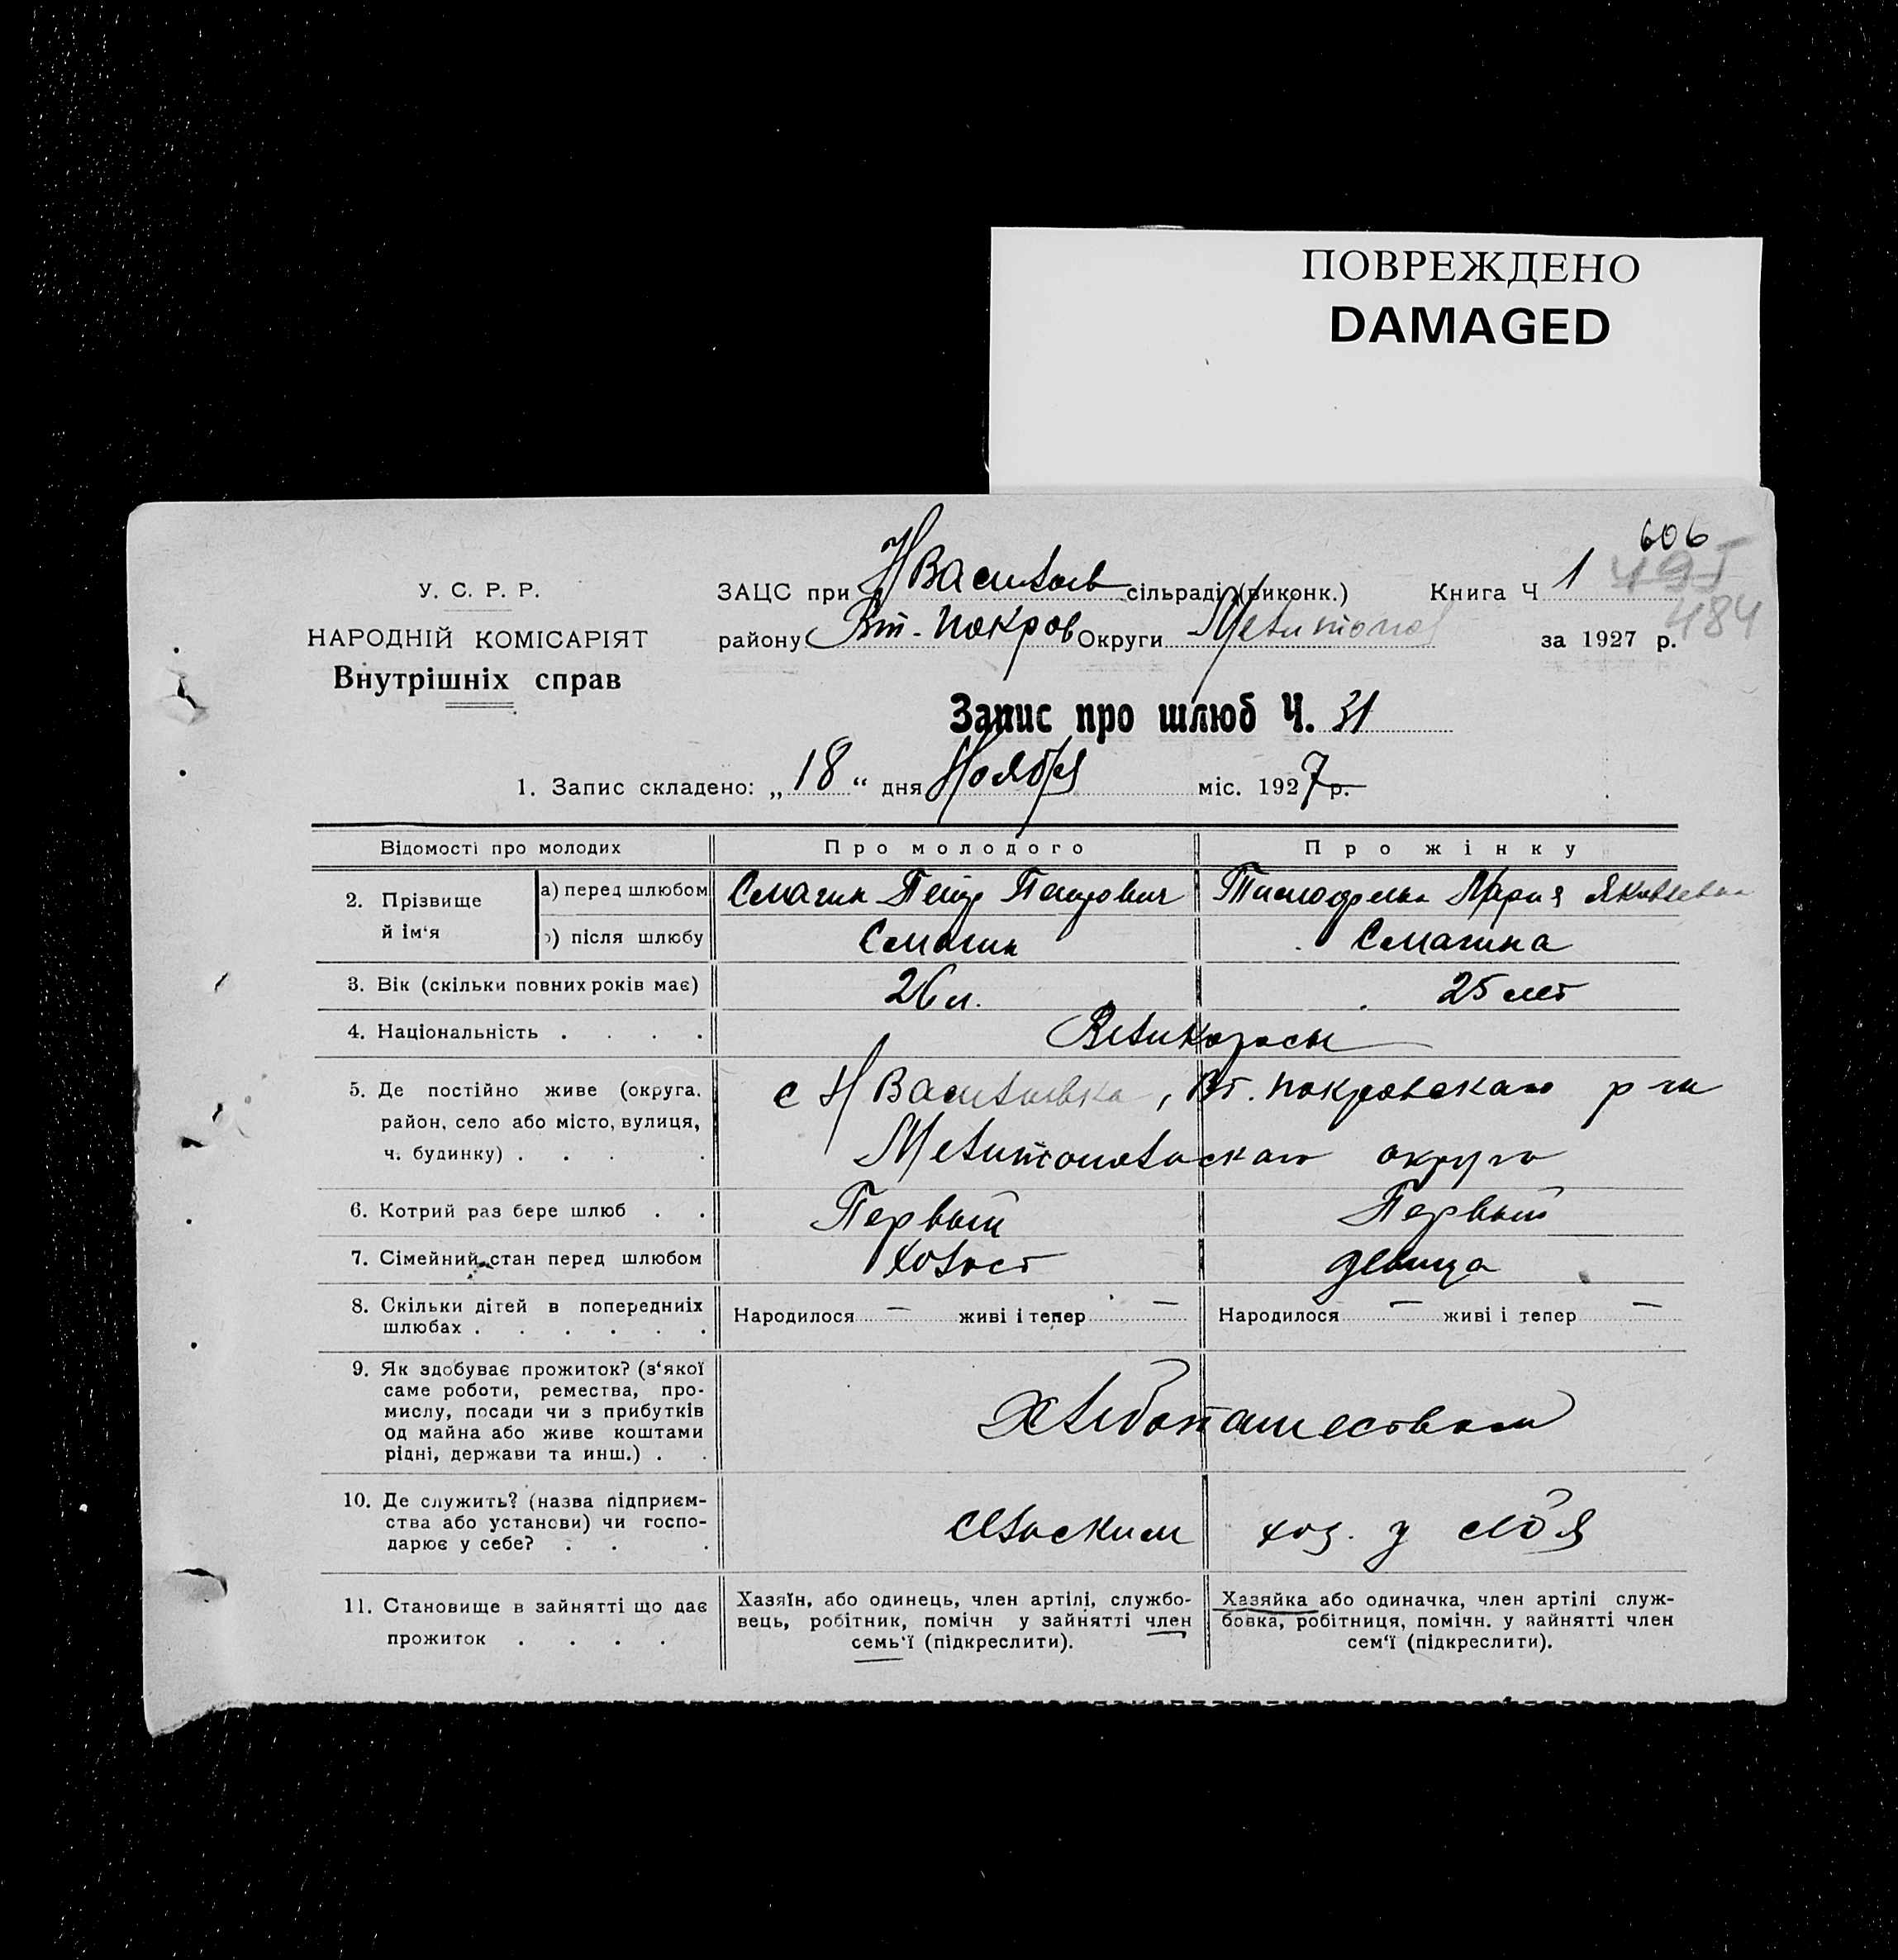 ПОВРЕЖДЕНО
DAMAGED
606
495
484
У. С. Р. Р.
НАРОДНІЙ КОМІСАРІЯТ
Внутрішніх справ
ЗАЦС при Н Васильев сільраді (виконк.) Книга Ч 1
району Вт-Покров Округи Мелитопол за 1927 р.
Запис про шлюб Ч. 31
1. Запис складено: „18“ дня Ноября міс. 1927 р.
Відомості про молодих Про молодого Про жінку
2. Прізвище й ім‘я
а) перед шлюбом Смагин Петр Петрович Мария Яковлевна
б) після шлюбу Смагин Смагина
3. Вік (скільки повних років має) 26 л. 25 лет
4. Національність . . . . Великоросы
5. Де постійно живе (округа, с Н Васильевка, Вт. Покровскаго р-на
район, село або місто, вулиця,
ч. будинку) . . . . Мелитопольскаго округа
6. Котрий раз бере шлюб . . Первый Первый
7. Сімейний стан перед шлюбом холост девица
8. Скільки дітей в попередніх Народилося — живі і тепер — Народилося — живі і тепер —
шлюбах . . . . . .
9. Як здобуває прожиток? (з‘якої
саме роботи, ремества, про-
мислу, посади чи з прибутків хлебопашеством
од майна або живе коштами
рідні, держави та инш.) . .
10. Де служить? (назва підприєм-
ства або установи) чи госпо- сельским хоз. у себя
дарює у себе? . . .
11. Становище в зайнятті що дає
прожиток . . . .
Хазяїн, або одинець, член артілі, службо-
вець, робітник, помічн у зайнятті член
семь‘ї (підкреслити).
Хазяйка або одиначка, член артілі служ-
бовка, робітниця, помічн. у зайнятті член
сем‘ї (підкреслити).